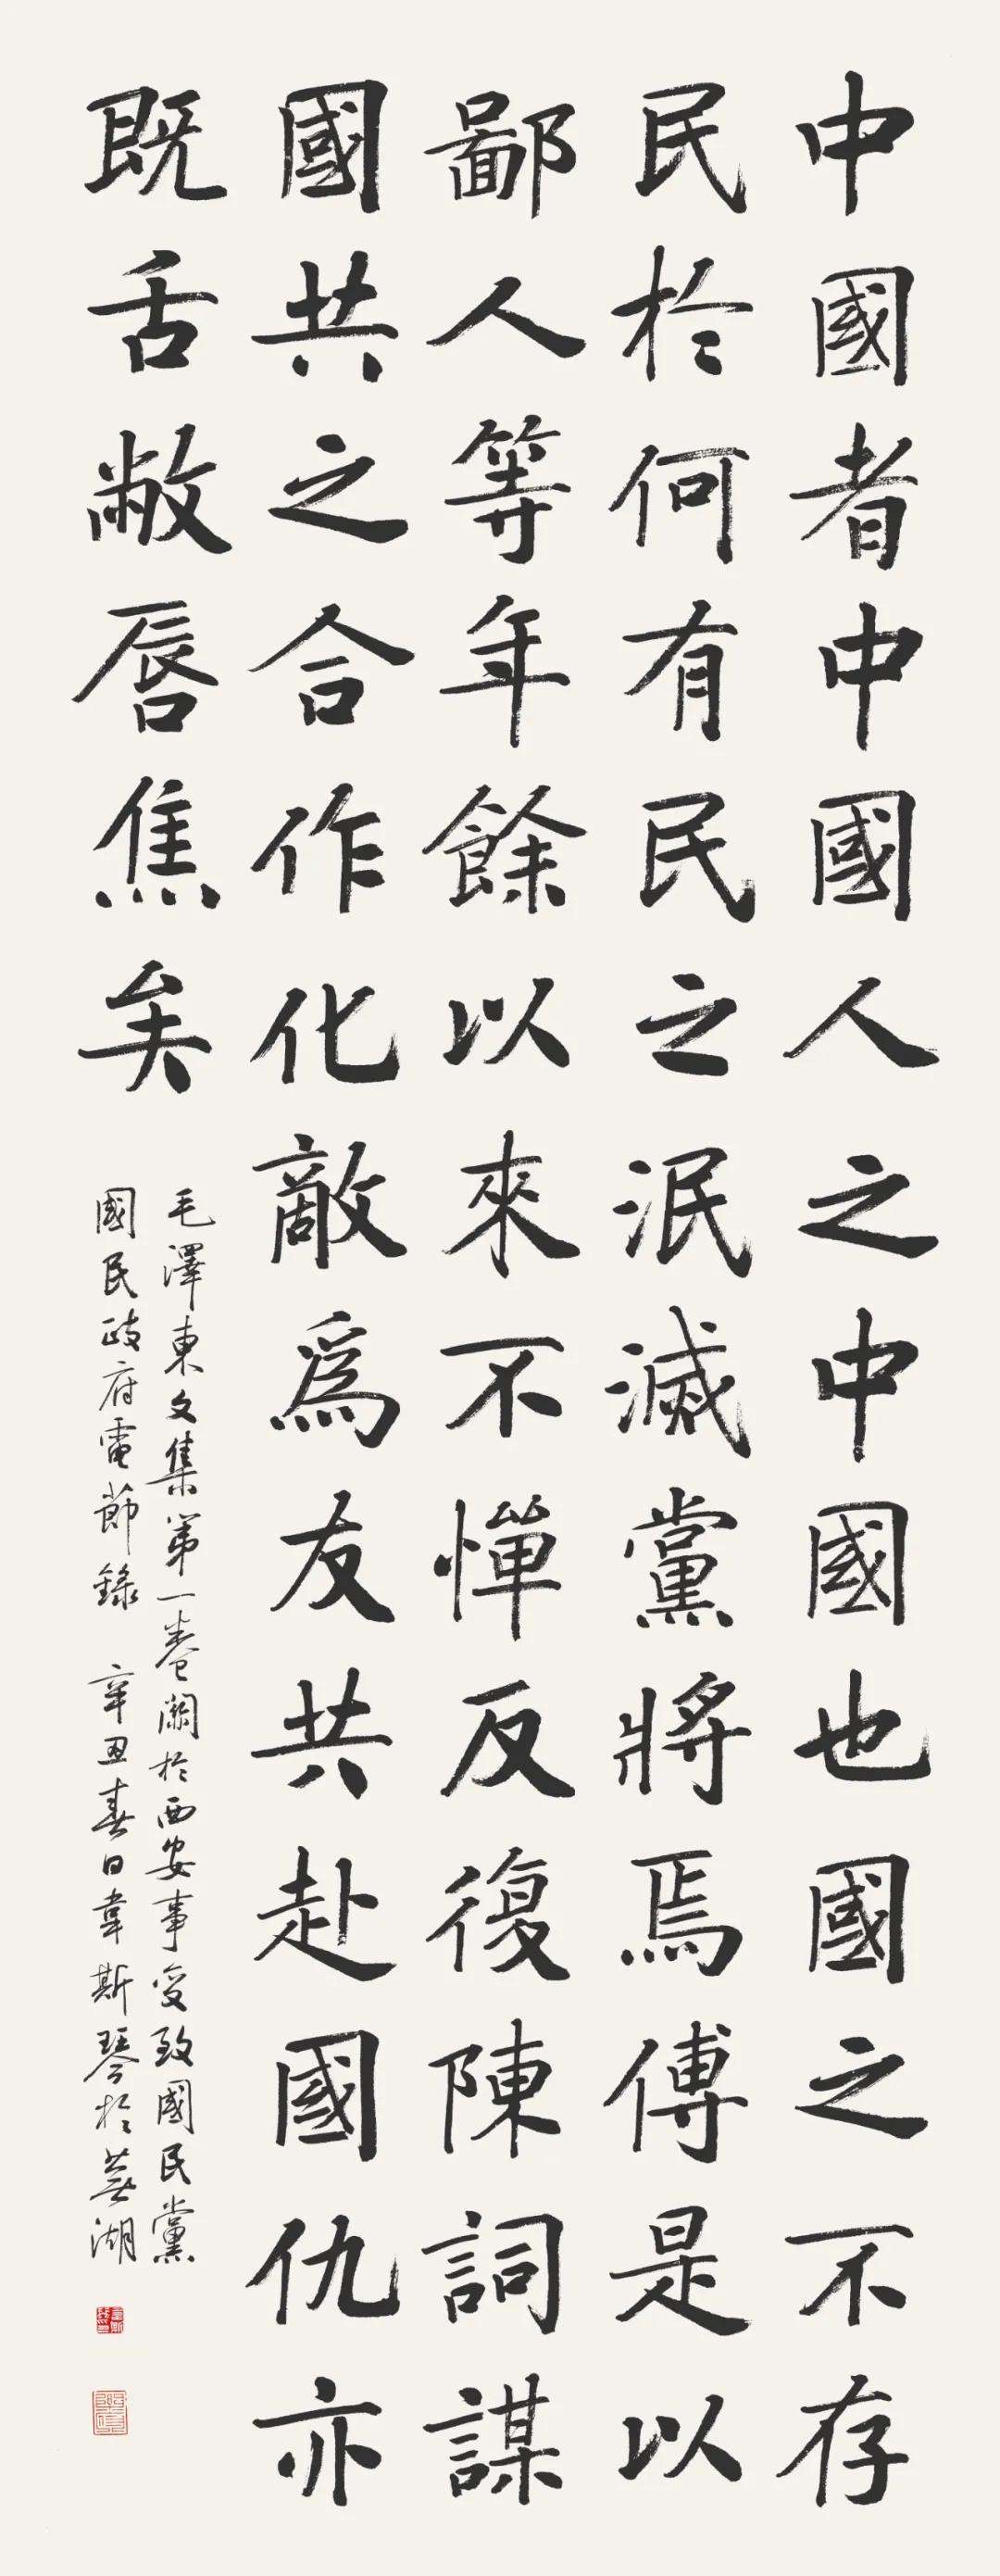 中國者中國人之中國也國之不存
民於何有民之泯滅黨將焉傅是以
鄙人等年餘以來不憚反復陳詞謀
國共之合作化敵爲友共赴國仇亦
既舌敝唇焦矣
毛澤東文集第一卷關於西安事变致國民黨
國民政府電節錄 辛丑春日韋斯琴於蕪湖